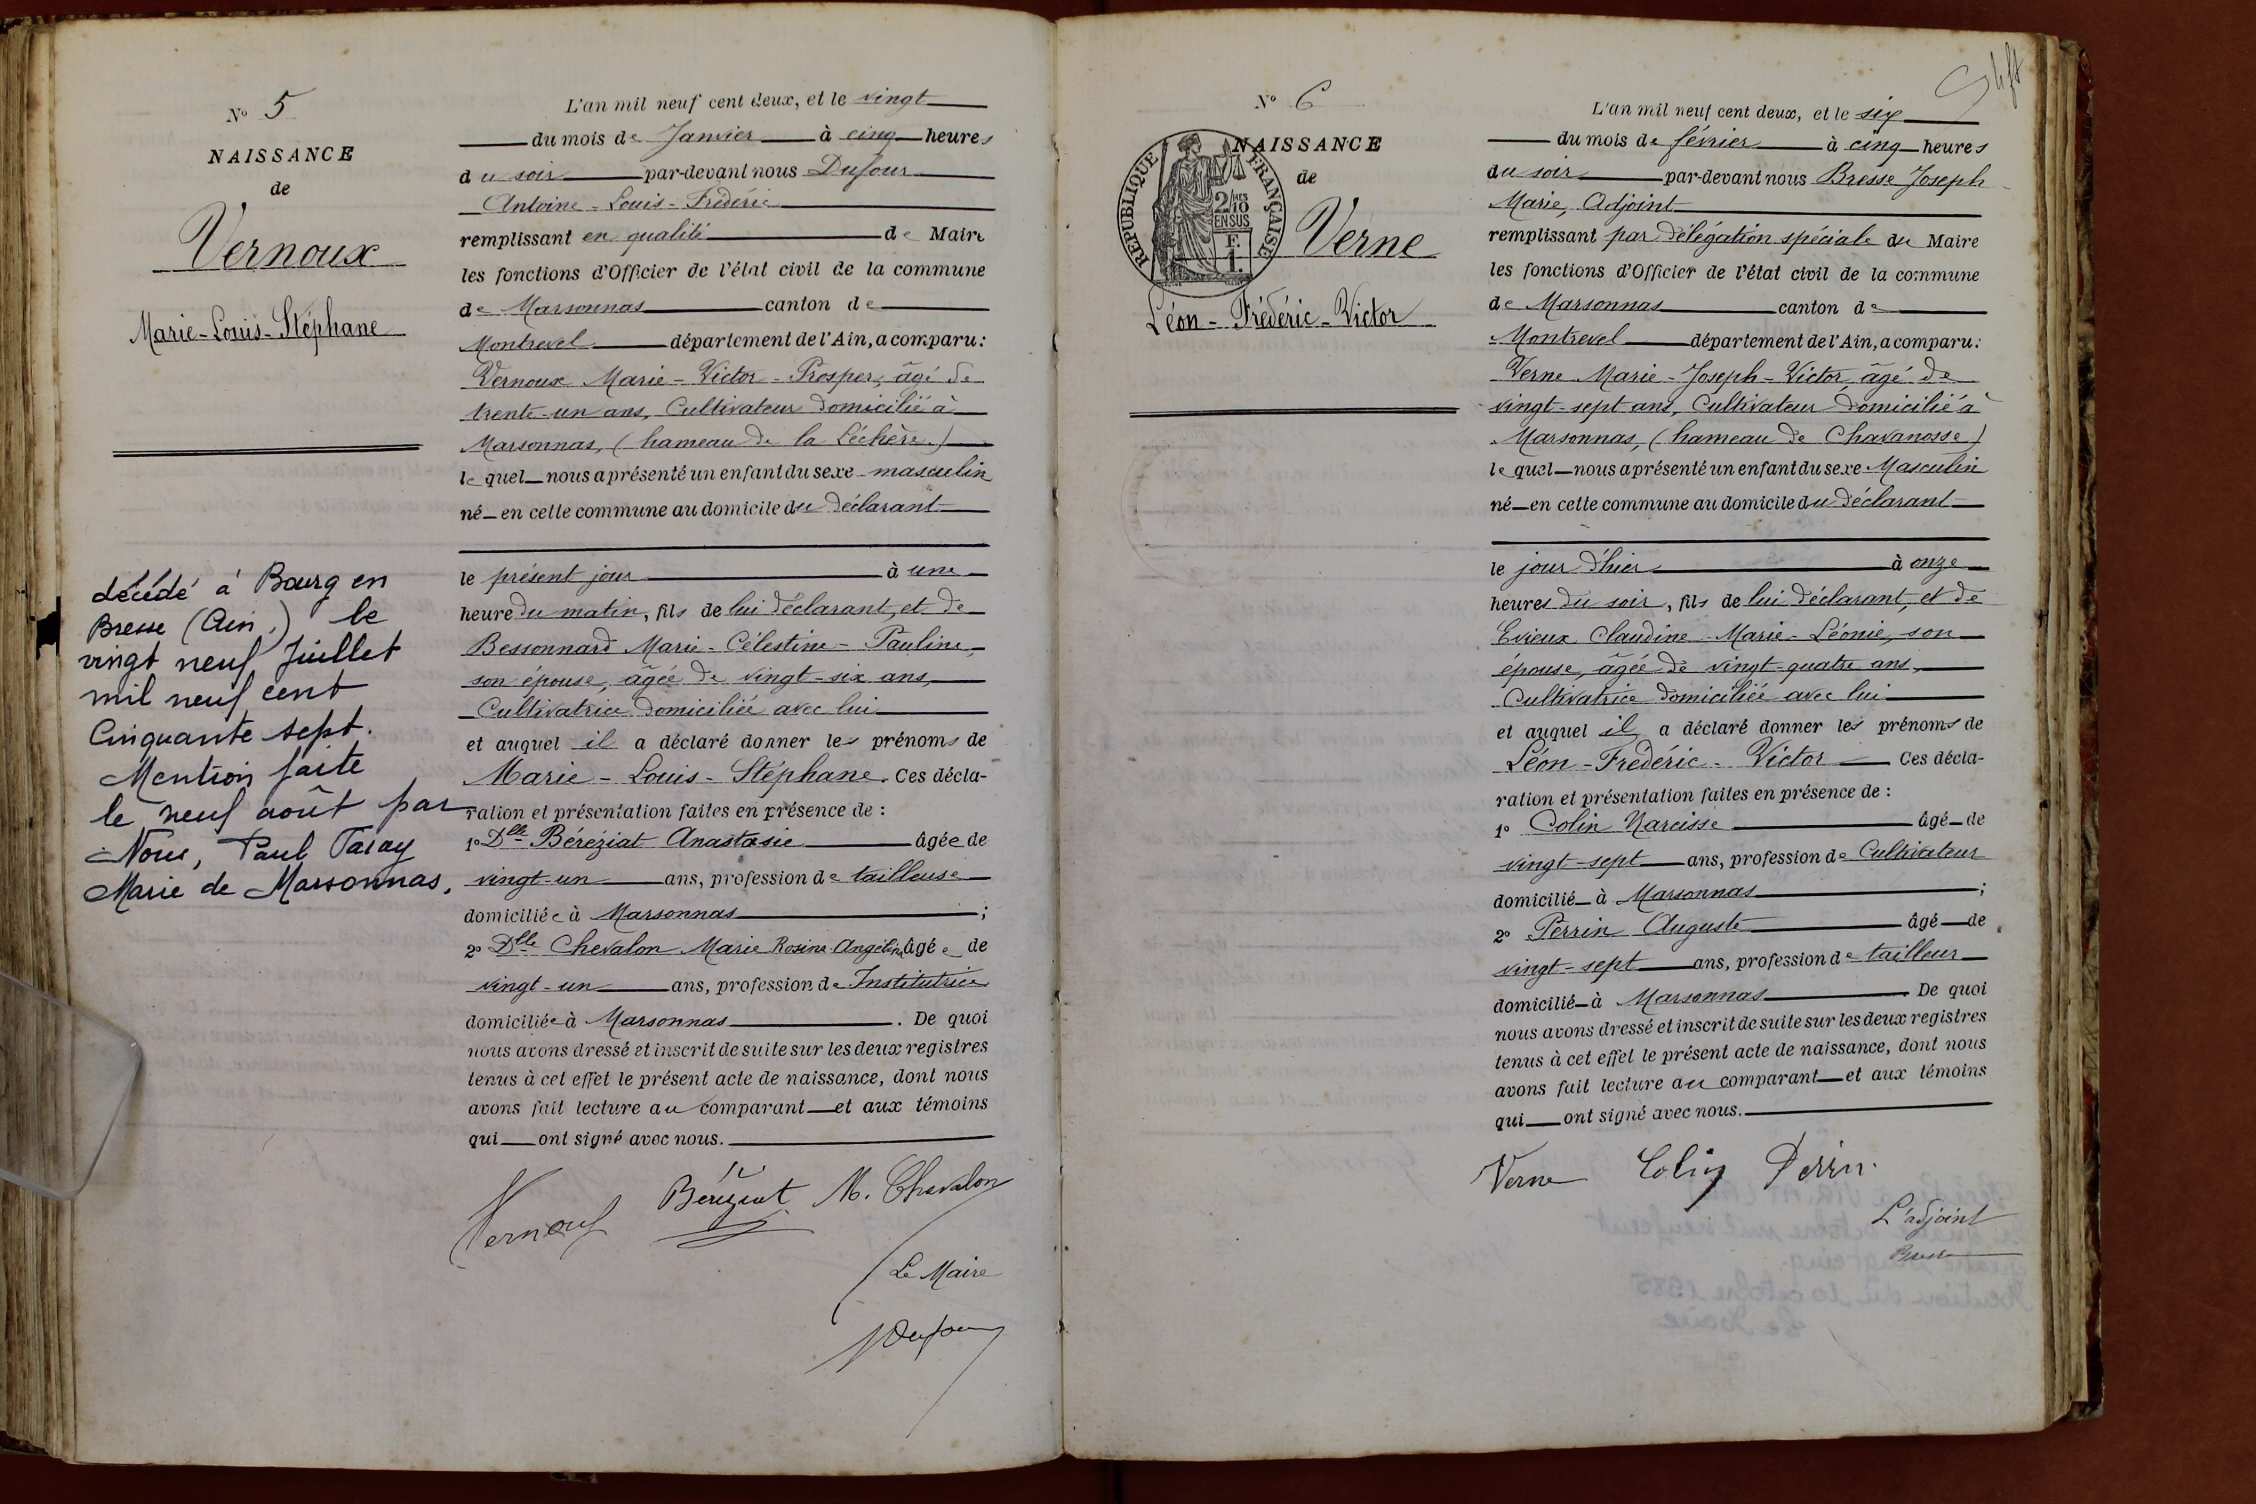 N° 5
NAISSANCE
de
Vernoux
Marie-Louis-Stéphane
décédé à Bourg en
Bresse (Ain.) le
vingt neuf Juillet
mil neuf cent
Cinquante sept.
Mention faite
le neuf août par
Nous, Paul
Marie de Marsonnas.
L'an mil neuf cent deux, et le vingt
du mois de Janvier à cinq heures
du soir par-devant nous Dufour
Antoine-Louis-Frédéric
remplissant en qualité de Maire
les fonctions d'Officier de l'état civil de la commune
de Marsonnas canton de
Montrevel département de l'Ain, a comparu :
Vernoux Marie-Victor-Prosper, âgé de
trente-un ans, Cultivateur domicilié à
Marsonnas, (hameau de la Léchère.)
lequel nous a présenté un enfant du sexe masculin
né en cette commune au domicile du déclarant
le présent jour à une
heure du matin, fils de lui déclarant, et de
Bessonnard Marie-Célestine-Pauline,
son épouse, âgée de vingt-six ans,
Cultivatrice domiciliée avec lui
et auquel il a déclaré donner les prénoms de
Marie-Louis-Stéphane. Ces décla-
ration et présentation faites en présence de :
1° Dlle Béréziat Anastasie âgée de
vingt-un ans, profession de tailleuse
domiciliée à Marsonnas ;
2° Dlle Chevalon Marie Rosine Angélina âgée de
vingt-un ans, profession de Institutrice
domiciliée à Marsonnas . De quoi
nous avons dressé et inscrit de suite sur les deux registres
tenus à cet effet le présent acte de naissance, dont nous
avons fait lecture au comparant et aux témoins
qui ont signé avec nous.
Vernoux Béréziat M. Chevalon
Le Maire
Dufour
N° 6
NAISSANCE
de
RÉPUBLIQUE FRANÇAISE
2/10 EN SUS
F. 1.
Verne
Léon-Frédéric-Victor
L'an mil neuf cent deux, et le six
du mois de février à cinq heures
du soir par-devant nous Bresse Joseph
Marie, Adjoint
remplissant par délégation spéciale du Maire
les fonctions d'Officier de l'état civil de la commune
de Marsonnas canton de
Montrevel département de l'Ain, a comparu :
Verne Marie-Joseph-Victor, âgé de
vingt-sept ans, Cultivateur domicilié à
Marsonnas, (hameau de Chavanosse)
lequel nous a présenté un enfant du sexe Masculin
né en cette commune au domicile du déclarant
le jour d'hier à onze
heures du soir, fils de lui déclarant, et de
Evieux Claudine-Marie-Léonie, son
épouse, âgée de vingt-quatre ans,
Cultivatrice domiciliée avec lui
et auquel il a déclaré donner les prénoms de
Léon-Frédéric-Victor Ces décla-
ration et présentation faites en présence de :
1° Colin Narcisse âgé de
vingt-sept ans, profession de Cultivateur
domicilié à Marsonnas ;
2° Perrin Auguste âgé de
vingt-sept ans, profession de tailleur
domicilié à Marsonnas De quoi
nous avons dressé et inscrit de suite sur les deux registres
tenus à cet effet le présent acte de naissance, dont nous
avons fait lecture au comparant et aux témoins
qui ont signé avec nous.
Verne Colin Perrin
L'adjoint
Bresse